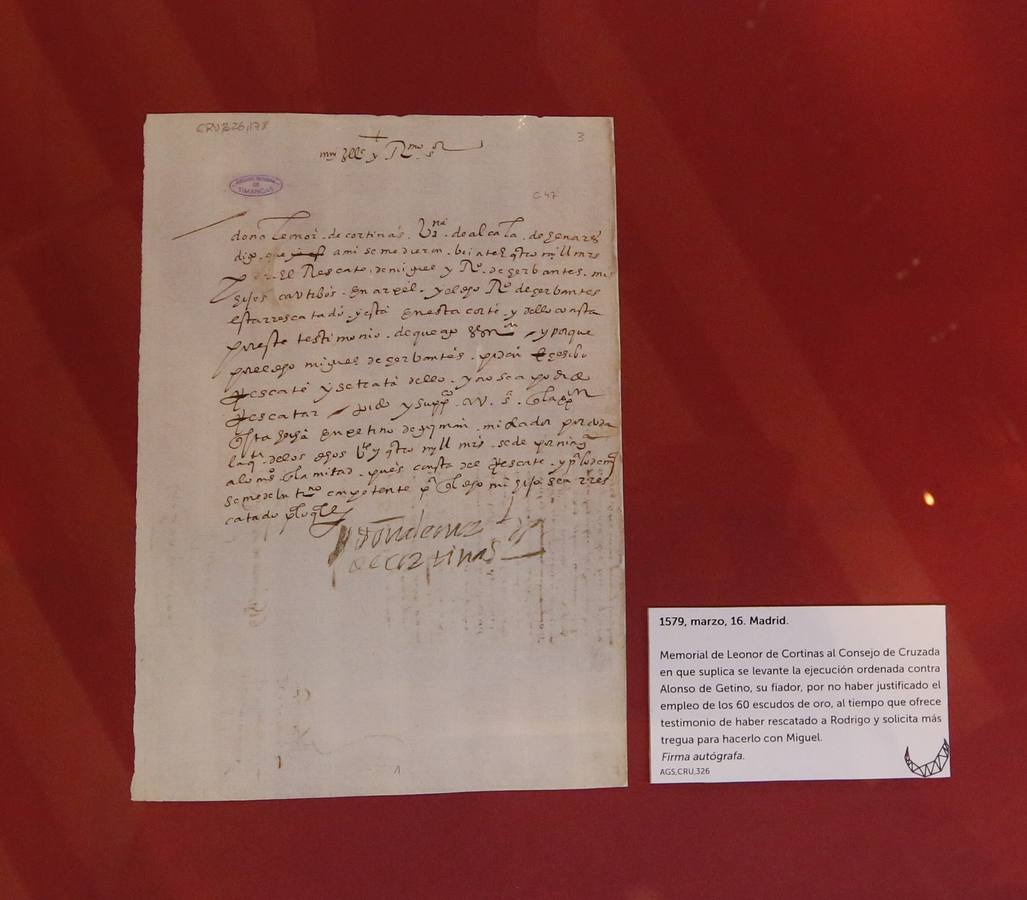 CRU,326,178
3
muy Ill e y Rmo sr
ARCHIVO GENERAL DE SIMANCAS
C 47
doña leonor de cortinas Vna de alcala de henares
digo que ami se me dieron beinte y qtro mill mrs
El Rescate de miguel y Ro de çerbantes mis
hijos cautibos en argel y el dho Ro de çerbantes
esta rrescatado y esta en esta corte y dello consta
por este testimonio de que ago y porque
por el dho miguel de çerbantes piden
Rescate y se trata dello y no se a podido
Rescatar pido y suppco V. S.
getino de guzman mi fiador por
la de los dhos y qtro mill mrs se
a lo ms la mitad pues consta del Rescate y
se me de un trno competente pa q el dho mi hijo sea rres
catado
doña leonor
de cortinas
1
1579, marzo, 16. Madrid.
Memorial de Leonor de Cortinas al Consejo de Cruzada
en que suplica se levante la ejecución ordenada contra
Alonso de Getino, su fiador, por no haber justificado el
empleo de los 60 escudos de oro, al tiempo que ofrece
testimonio de haber rescatado a Rodrigo y solicita más
tregua para hacerlo con Miguel.
Firma autógrafa.
AGS,CRU,326